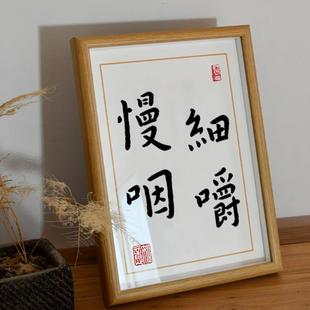 細嚼
慢咽